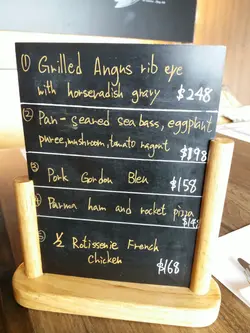 ① Grilled Angus rib eye
with horseradish gravy $248
② Pan-seared sea bass, eggplant
puree, mushroom, tomato ragout
$198
③ Pork Gordon Bleu
$158
④ Parma ham and rocket pizza
⑤ ½ Rotisserie French
Chicken $168